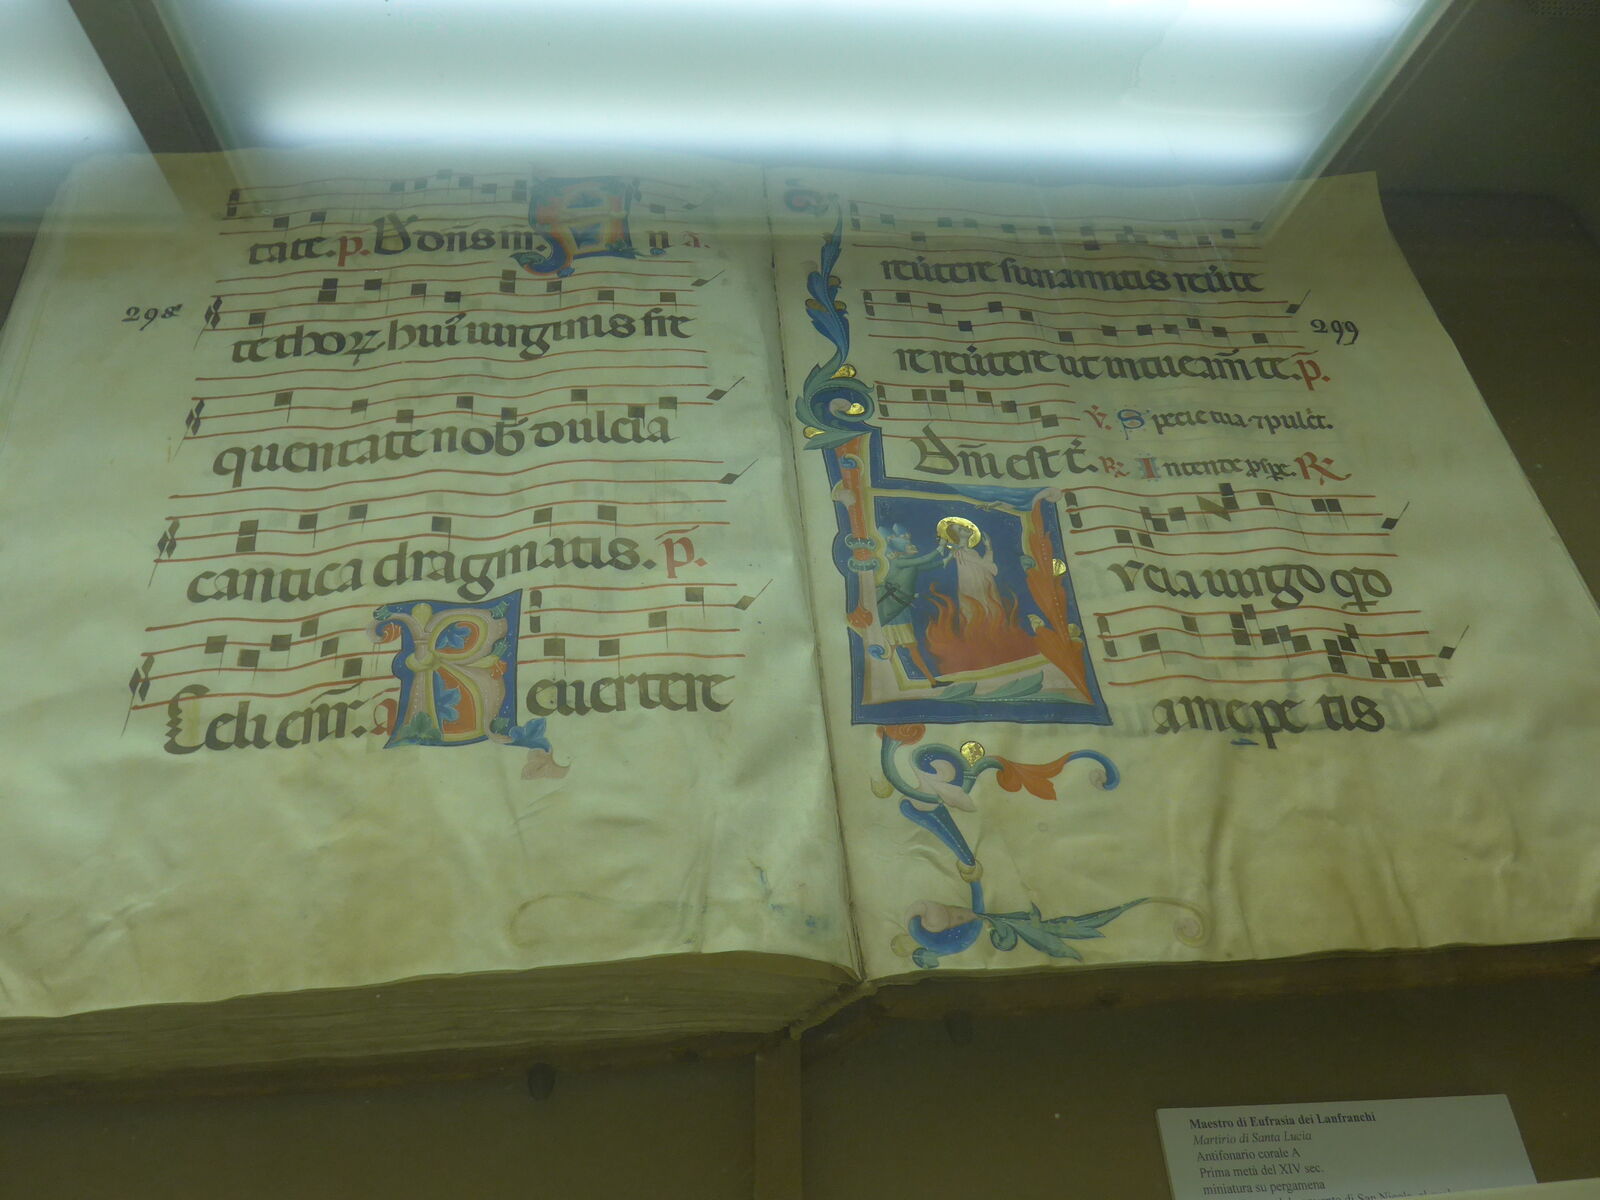 tate. p. Ds. Dons in. A n a.
298
te thoꝝ huı᷑ uirginis fre
quentate nob dulcia
cantica dragmatis. p.
Celi enr. a R euertere
reu̇tere sunamitis reu̇te
299
re reu̇tere ut intueam̄ te. p.
v. Specie tua ⁊ pulcr.
Dm̄ est t̄. R Intende ꝓspe. R
L ucia uirgo qd
a me pe tis
Maestro di Eufrasia dei Lanfranchi
Martirio di Santa Lucia
Antifonario corale A
Prima metà del XIV sec.
miniatura su pergamena
di San